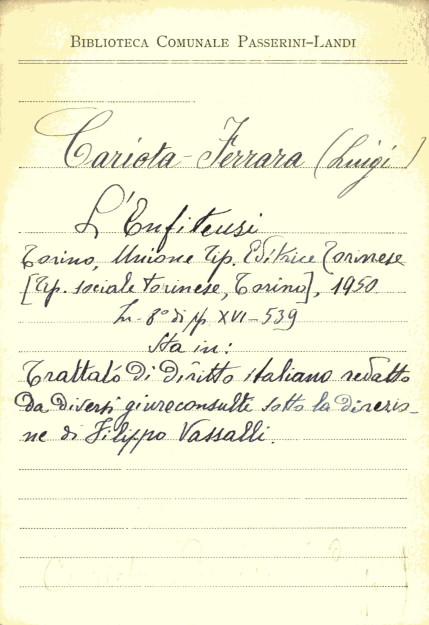 BIBLIOTECA COMUNALE PASSERINI-LANDI
Cariota-Ferrara (Luigi)
L'Enfiteusi
Torino, Unione Tip. Editrice Torinese
[Tip. sociale torinese, Torino], 1950
In-8° di pp XVI-539
Sta in:
Trattato di diritto italiano redatto
da diversi giureconsulti sotto la direzio-
ne di Filippo Vassalli.